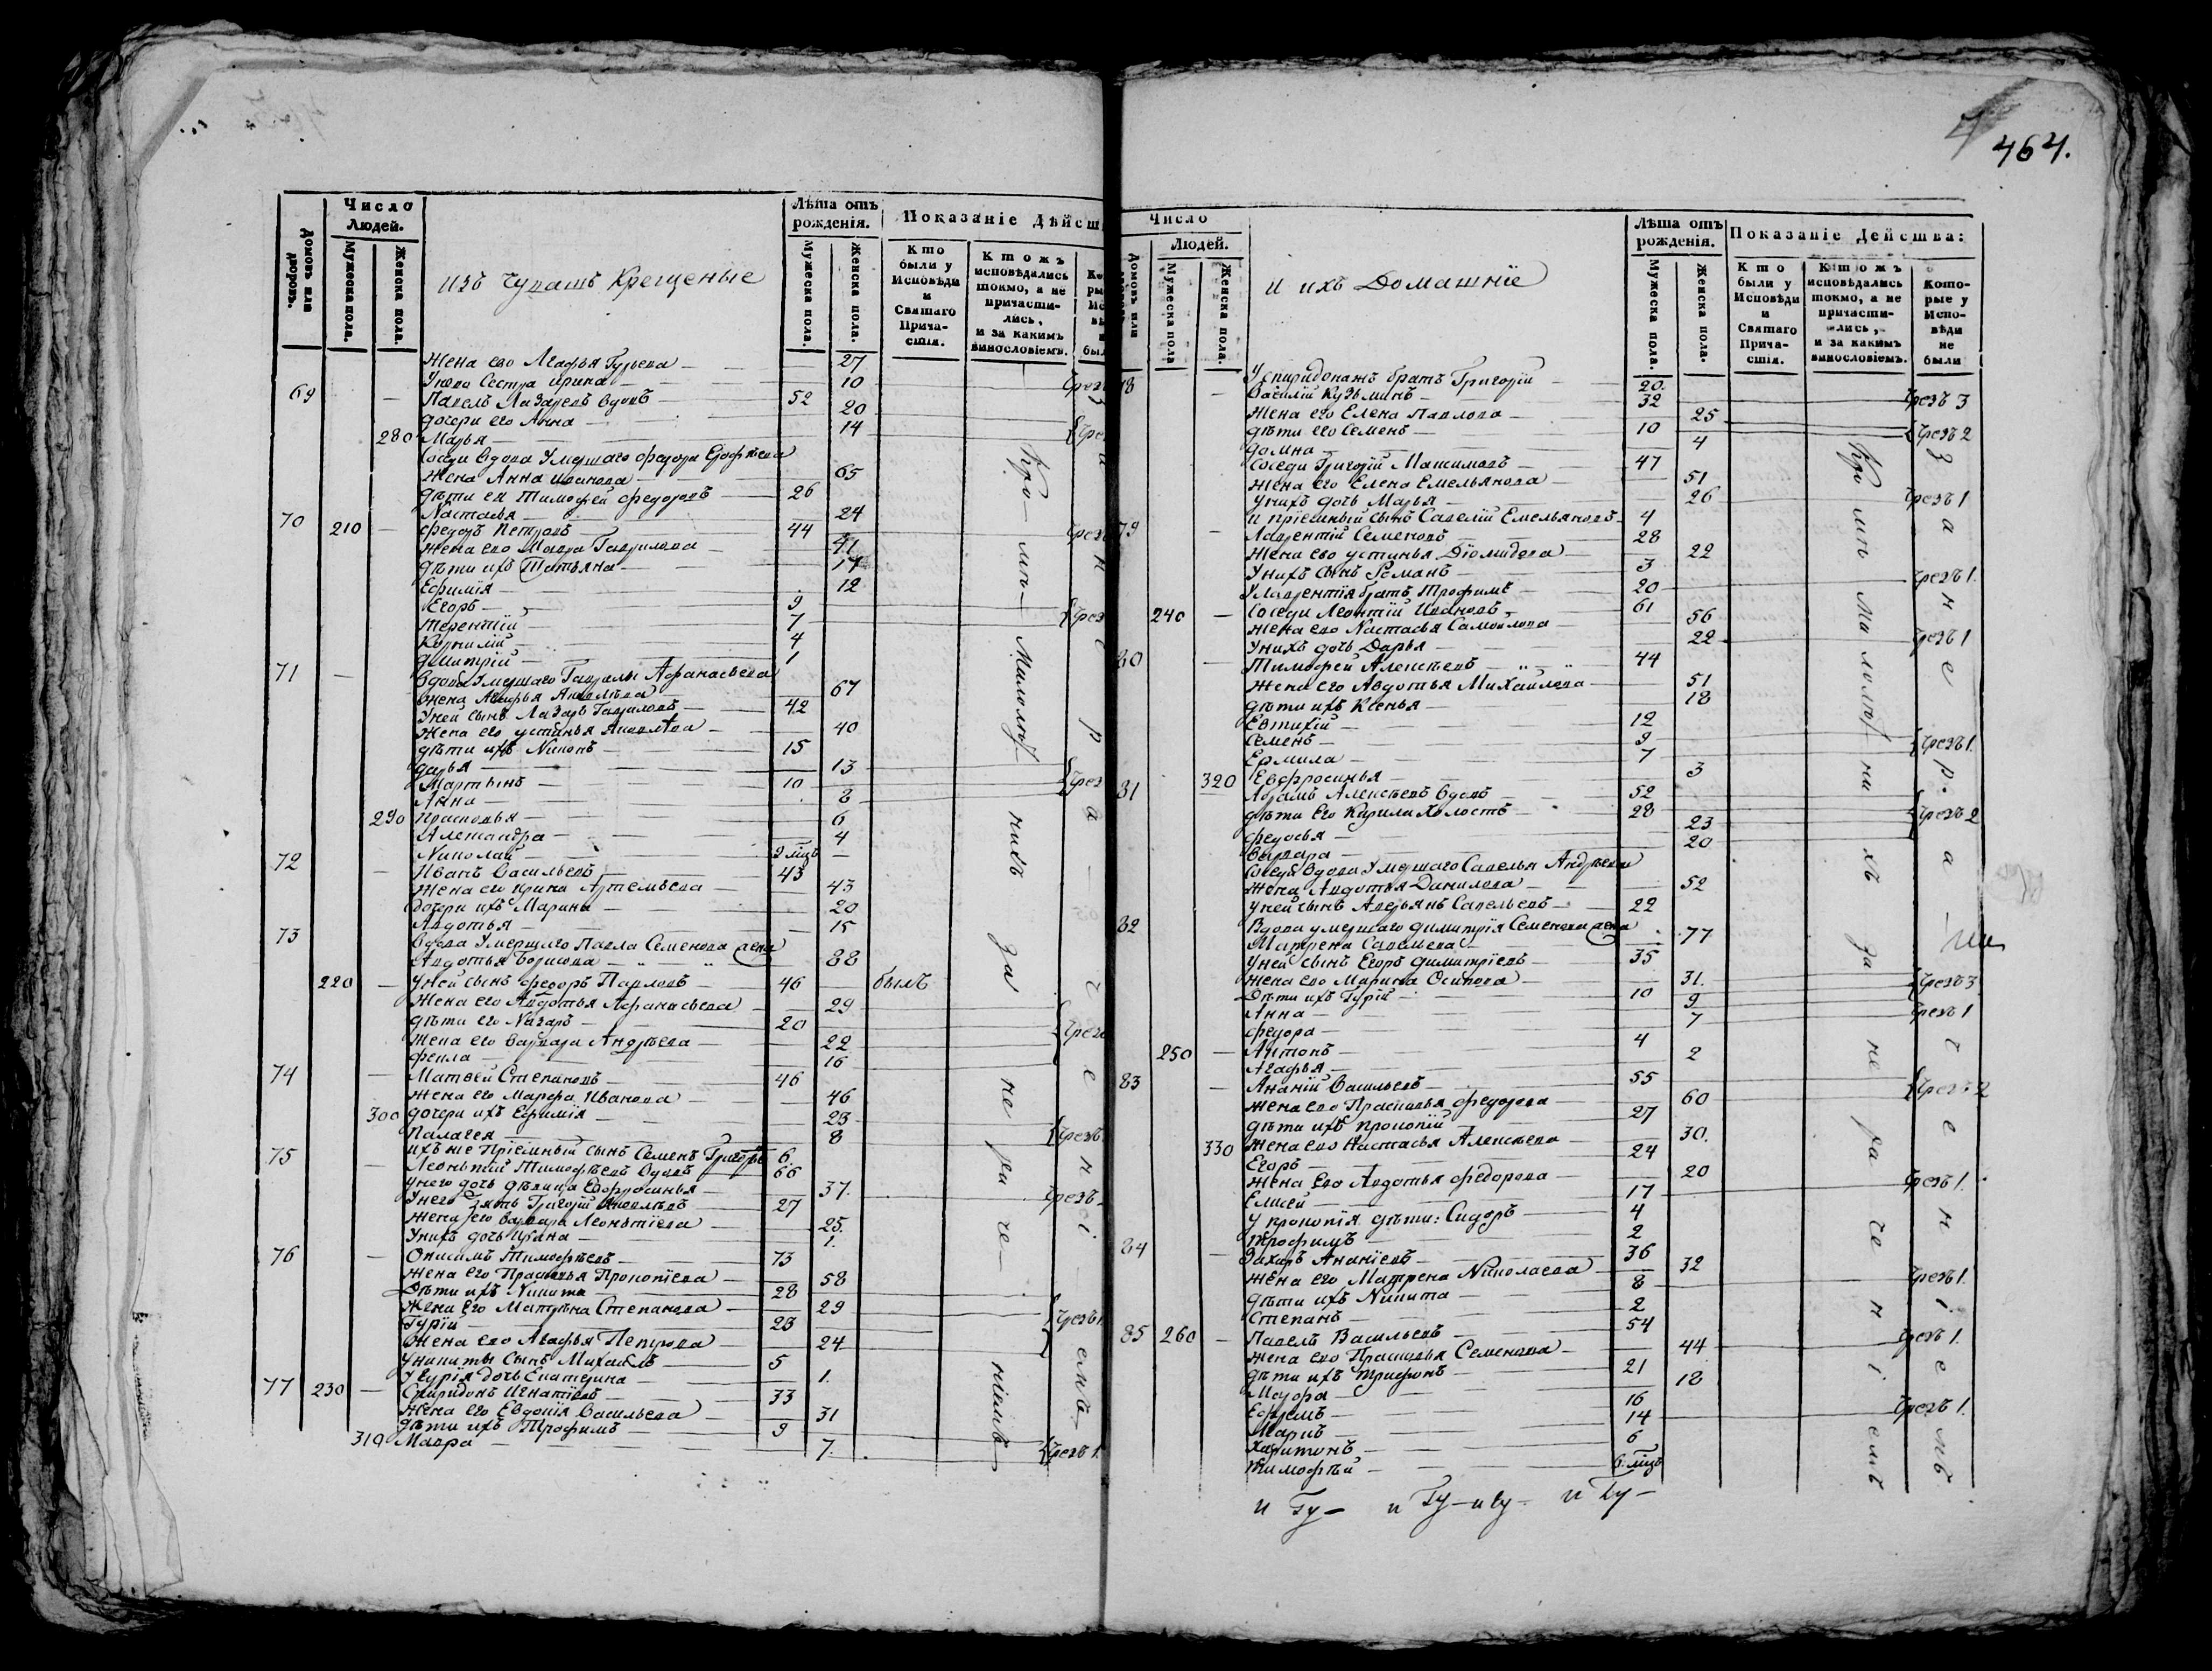 464.
Число Людей.
Лѣта отъ рожденія.
Показаніе Дѣйст
Домовъ или дворовъ.
Мужеска пола.
Женска пола.
изъ чувашъ Крещеные
Мужеска пола.
Женска пола.
Кто были у Исповѣди и Святаго Прича-стія.
Ктожъ исповѣдались токмо, а не причасти-лись, и за какимъ винословіемъ.
Жена его Агафья Гурьева 27
Унево Сестра ирина 10
69 Павелъ Лазаревъ вдовъ 52
дочери его Анна 20
280 Марья 14
Соседи Вдова Умершаго федора Ерофѣева
Жена Анна иванова 65
дѣти ея Тимофей федоровъ 26
Настасья 24
70 210 федоръ Петровъ 44
жена его Мавра Гаврилова 41
дѣти ихъ Татьяна 17
Ефимія 12
Егоръ 9
Терентій 7
Корнилій 4
димитрій 1
71 Вдова Умершаго Гаврилы Афанасьева
Жена Агафья Яковлева 67
Уней сынъ Лазарь Гавриловъ 42
Жена его устинья Яковлева 40
дѣти ихъ Никонъ 15
дарья 13
Мартынъ 10
Анна 8
290 Прасковья 6
Александра 4
Николай 9 мцъ
72 Иванъ Васильевъ 43
Жена его ирина Артемьева 43
дочери ихъ Марина 20
Авдотья 15
73 Вдова Умершаго Павла Семенова жена
Авдотья Борисова 88
220 Уней сынъ федоръ Павловъ 46 былъ
Жена его Авдотья Афанасьева 29
дѣти его Назаръ 20
Жена его Варвара Андрѣева 22
фекла 16
74 Матвей Степановъ 46
Жена его Марфа Иванова 46
300 дочери ихъ Ефимія 23
Палагея 8
ихъ же Пріемный сынъ Семенъ Григорьевъ 6
75 Леонтій Тимофѣевъ вдовъ 66
Унего дочь дѣвица Евфросинья 37.
Унего зять Григорій Яковлевъ 27
жена его Варвара Леонтіева 25.
Унихъ дочь Ирина 1.
76 Онисимъ Тимофѣевъ 73
Жена его Прасковья Прокопіева 58
Дѣти ихъ Никита 28
Жена его Матрена Степанова 29
Гурій 23
Жена его Агафья Петрова 24
Уникиты сынъ Михайлъ 5
У Гурія дочь Екатерина 1.
77 230 Спиридонъ Игнатіевъ 33
Жена его Евдокія Васильева 31
дѣти ихъ Трофимъ 9
310 Мавра 7. Чрезъ 1.
Число Людей.
Лѣта отъ рожденія.
Показаніе Действа:
Домовъ или
Мужеска пола
Женска пола.
и ихъ Домашніе
Мужеска пола.
Женска пола.
Кто были у Исповѣди и Святаго Прича-стія.
Ктожъ исповѣдались токмо, а не причасти-лись, и за какимъ винословіемъ.
Кото-рые у Испо-вѣди не были
У спиридонажъ братъ Григорій 20.
78 Василій Кузьминъ 32 Чрезъ 3
Жена его Елена Павлова 25
дѣти его Семенъ 10 Чрезъ 2
домна 4
Соседи Григорій Максимовъ 47
Жена его Елена Емельянова 51
Унихъ дочь Марья 26 Чрезъ 1
и пріемный сынъ Савелій Емельяновъ 4
79 Лаврентій Семеновъ 28
Жена его устинья Діомидова 22
Унихъ сынъ Романъ 3 Чрезъ 1.
У Лаврентія братъ Трофимъ 20
240 Соседи Леонтій Ивановъ 61
Жена его Настасья Самойлова 56
Унихъ дочь Дарья 22 Чрезъ 1
80 Тимофей Алексѣевъ 44
Жена его Авдотья Михайлова 51
дѣти ихъ Ксенья 18
Евтихій 12
Семенъ 9 Чрезъ 1.
Ермила 7
320 Евфросинья 3
81 Абрамъ Алексѣевъ вдовъ 52
дѣти Его Кирила Холостъ 28 Чрезъ 2
федосья 23
Варвара 20
Соседи Вдова Умершаго Савелья Андрѣева
Жена Авдотья Данилова 52
уней сынъ Аверьянъ Савельевъ 22
82 Вдова умершаго димитрія Семенова жена
Матрена Савельева 77
Уней сынъ Егоръ димитріевъ 35
жена его Марина Осипова 31. Чрезъ 3
Дѣти ихъ Гурій 10
Анна 9 Чрезъ 1
федора 7
250 Антонъ 4
Агафья 2
83 Ананій Васильевъ 55 Чрезъ 2
Жена его Прасковья федорова 60
дѣти ихъ Прокопій 27
330 Жена его Настасья Алексѣева 30.
Егоръ 24
Жена его Авдотья федорова 20 Чрезъ 1.
Елисей 17
у прокопія дѣти: Сидоръ 4
Трофимъ 2
84 Захаръ Ананіевъ 36
Жена его Матрена Николаева 32 Чрезъ 1.
дѣти ихъ Никита 8
Степанъ 2
85 260 Павелъ Васильевъ 54 Чрезъ 1.
Жена его Прасковья Семенова 44
дѣти ихъ Трифонъ 21
Марфа 18
Ефремъ 16 Чрезъ 1.
Маркъ 14
Харитонъ 6
Тимофѣй 6. мцъ
Кромѣ Малолѣт нихъ за нераченіемъ
Кромѣ малолѣтнихъ за нераченіемъ
За нераченіемъ